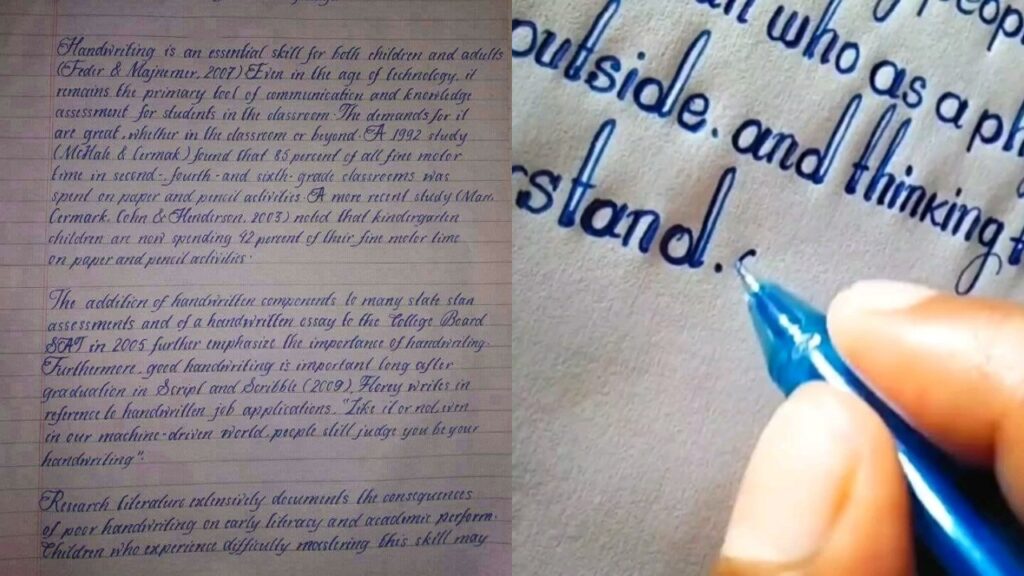 Handwriting is an essential skill for both children and adults
(Feder & Majnemer, 2007) Even in the age of technology, it
remains the primary tool of communication and knowledge
assessment for students in the classroom. The demands for it
are great, whether in the classroom or beyond. A 1992 study
(McHale & Cermak) found that 85 percent of all fine motor
time in second-, fourth-and sixth-grade classrooms was
spent on paper and pencil activities. A more recent study (Marr,
Cermark, Cohn & Henderson, 2003) noted that kindergarten
children are now spending 42 percent of their fine motor time
on paper and pencil activities.
The addition of handwritten components to many state stan
assessments and of a handwritten essay to the College Board
SAT in 2005 further emphasize the importance of handwriting.
Furthermore, good handwriting is important long after
graduation in Script and Scribble (2009), Florey writes in
reference to handwritten job applications, "Like it or not, even
in our machine-driven world, people still judge you be your
handwriting".
Research literature extensively documents the consequences
of poor handwriting on early literacy and academic perform.
Children who experience difficulty mastering this skill may
people
who as a ph
outside. and thinking
stand.